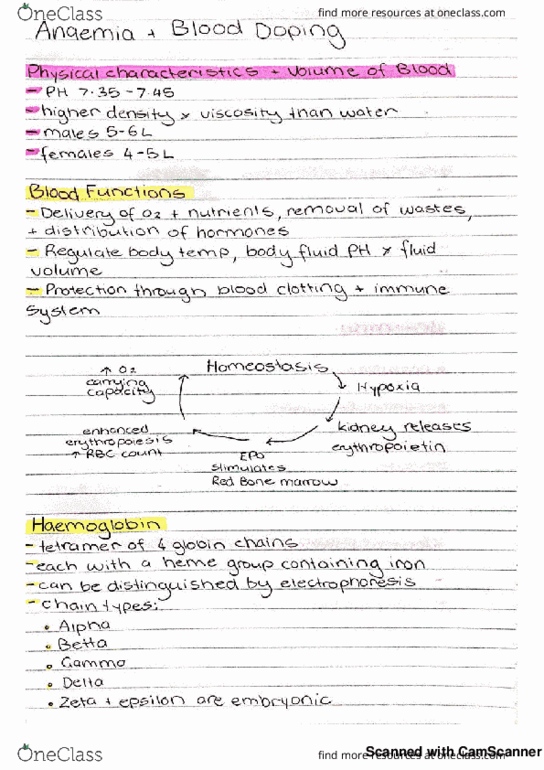 OneClass
find more resources at oneclass.com
Anaemia + Blood Doping
Physical characteristics + volume of Blood
- PH 7.35 - 7.45
- higher density & viscosity than water
- males 5-6L
- females 4-5L
Blood Functions
- Delivery of O2 + nutrients, removal of wastes,
+ distribution of hormones
- Regulate body temp, body fluid PH & fluid
volume
- Protection through blood clotting + immune
system
Homeostasis
Hypoxia
kidney releases
erythropoietin
EPO
stimulates
Red Bone marrow
enhanced
erythropoiesis
↑ RBC count
↑ O2
carrying
capacity
Haemoglobin
- tetramer of 4 globin chains
- each with a heme group containing iron
- can be distinguished by electrophoresis
- chain types:
• Alpha
• Betta
• Gamma
• Delta
• Zeta + epsilon are embryonic
OneClass
find more resources at oneclass.com
Scanned with CamScanner